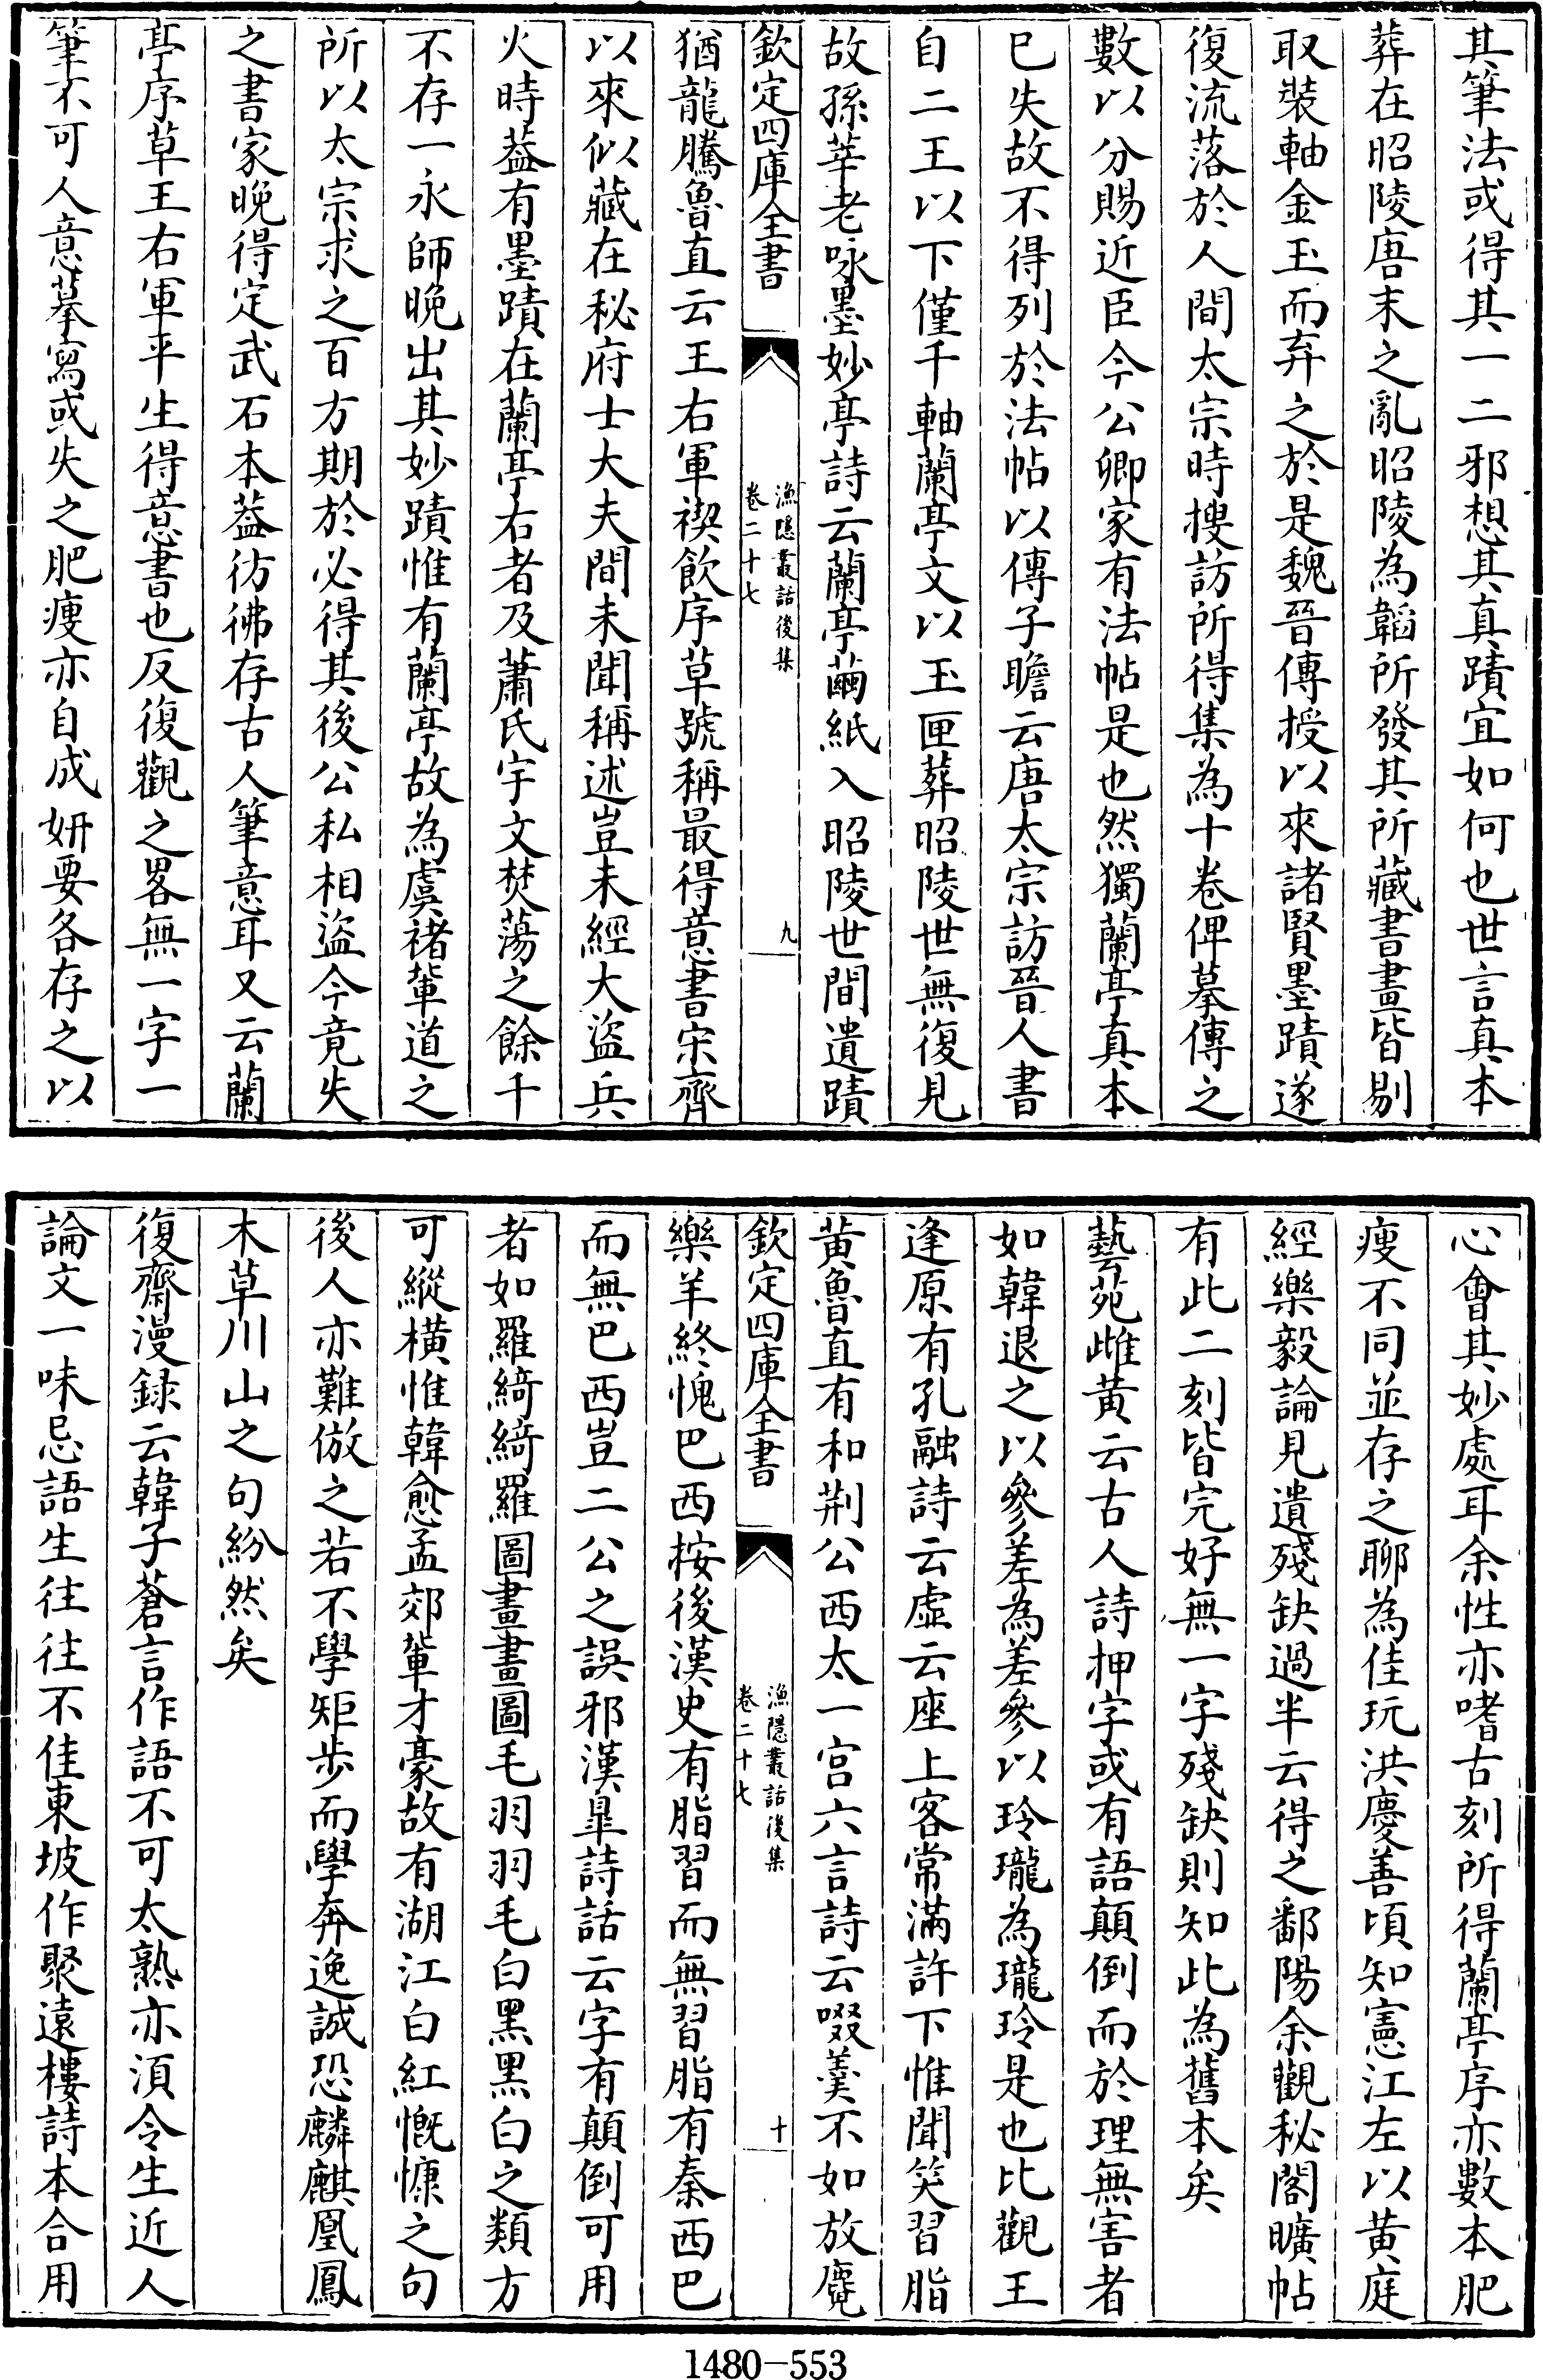 其筆法或得其一二邪想其真蹟宜如何也世言真本
葬在昭陵唐末之亂昭陵為韜所發其所藏書畫皆剔
取裝軸金玉而弃之於是魏晉傳授以來諸賢墨蹟遂
復流落於人間太宗時搜訪所得集為十卷俾摹傳之
數以分賜近臣今公卿家有法帖是也然獨蘭亭真本
已失故不得列於法帖以傳子瞻云唐太宗訪晉人書
自二王以下僅千軸蘭亭文以玉匣葬昭陵世無復見
故孫莘老咏墨妙亭詩云蘭亭繭紙入昭陵世間遺蹟
欽定四庫全書
漁隱叢話後集
卷二十七
九
猶龍騰魯直云王右軍禊飲序草號稱最得意書宋齊
以來似藏在秘府士大夫間未聞稱述豈未經大盜兵
火時葢有墨蹟在蘭亭右者及蕭氏宇文焚蕩之餘千
不存一永師晚出其妙蹟惟有蘭亭故為虞褚輩道之
所以太宗求之百方期於必得其後公私相盜今竟失
之書家晚得定武石本葢彷彿存古人筆意耳又云蘭
亭序草王右軍平生得意書也反復觀之畧無一字一
筆不可人意摹寫或失之肥瘦亦自成妍要各存之以
心會其妙處耳余性亦嗜古刻所得蘭亭序亦數本肥
瘦不同並存之聊為佳玩洪慶善頃知憲江左以黄庭
經樂毅論見遺殘缺過半云得之鄱陽余觀秘閣曠帖
有此二刻皆完好無一字殘缺則知此為舊本矣
藝苑雌黄云古人詩押字或有語顛倒而於理無害者
如韓退之以參差為差參以玲瓏為瓏玲是也比觀王
逢原有孔融詩云虛云座上客常滿許下惟聞笑習脂
黄魯直有和荆公西太一宫六言詩云啜羹不如放麑
欽定四庫全書
漁隱叢話後集
卷二十七
十
樂羊終愧巴西按後漢史有脂習而無習脂有秦西巴
而無巴西豈二公之誤邪漢臯詩話云字有顛倒可用
者如羅綺綺羅圖畫畫圖毛羽羽毛白黑黑白之類方
可縱橫惟韓愈孟郊輩才豪故有湖江白紅慨慷之句
後人亦難倣之若不學矩步而學奔逸誠恐麟麒凰鳳
木草川山之句紛然矣
復齋漫録云韓子蒼言作語不可太熟亦須令生近人
論文一味忌語生往往不佳東坡作聚遠樓詩本合用
1480-553